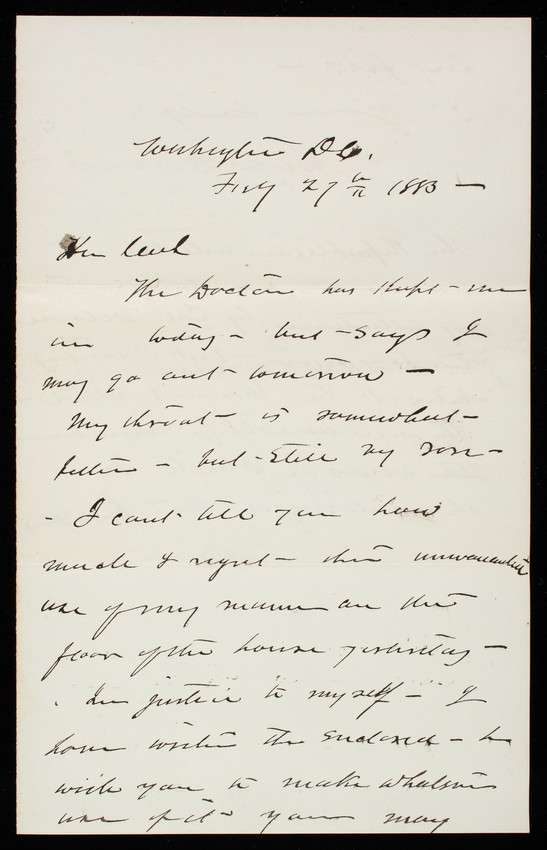 Washington D.C.
Feby 27th 1883 —
Gen Casey
The Doctor has kept me
in today — but says I
may go out tomorrow —
My throat is somewhat
better — but still very sore —
- I cant tell you how
much I regret the unwarranted
use of my name on the
floor of the house yesterday —
In justice to myself — I
have written the enclosed —
wish you to make whatever
use of it you may